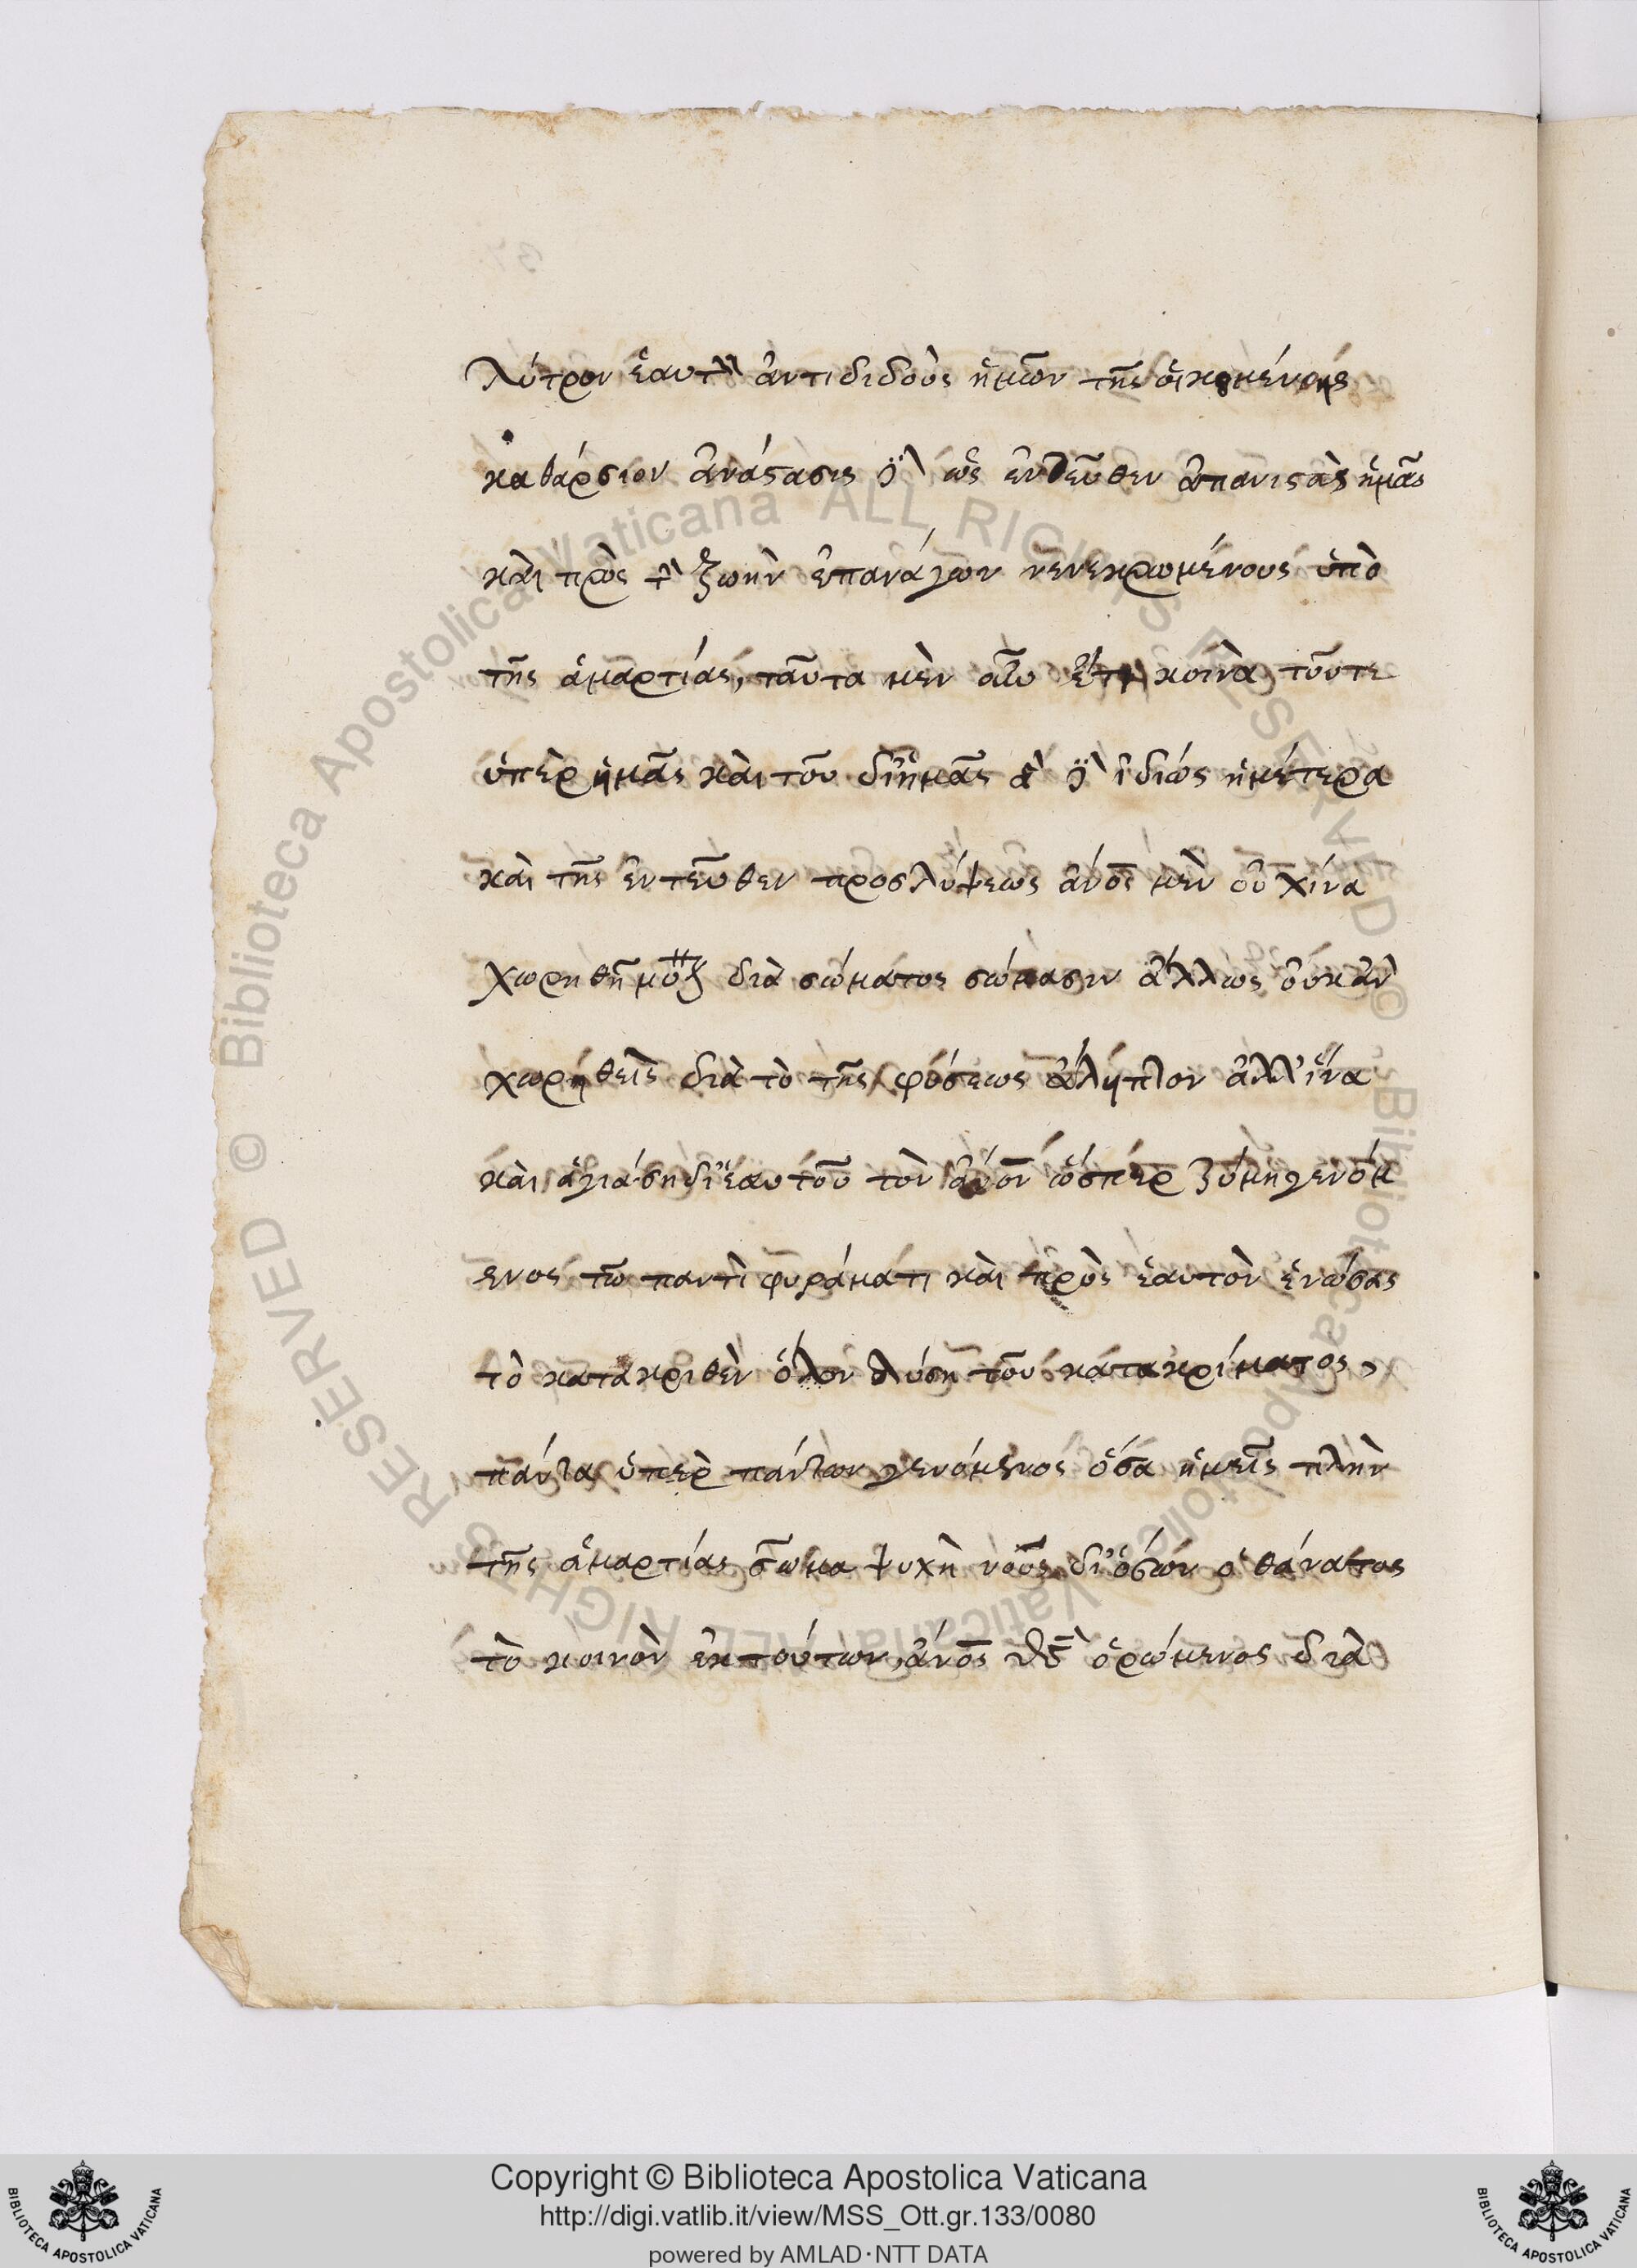 λύτρον ἑαυτὸν ἀντιδιδοὺς ἡμῶν τῆς οἰκουμένης
καθάρσιον ἀνάστασις δὲ ὡς ἐντεῦθεν ἀπανιστὰς ἡμᾶς
καὶ πρὸς τὴν ζωὴν ἐπανάγων νενεκρωμένους ὑπὸ
τῆς ἁμαρτίας, ταῦτα μὲν οὖν ἔτι κοινὰ τοῦτε
ὑπὲρ ἡμᾶς καὶ τοῦ δι' ἡμᾶς ἃ δὲ ἰδίως ἡμέτερα
καὶ τῆς ἐντεῦθεν προσλύψεως ἄνος μὲν οὐχ ἵνα
χωρηθῆ μόνον διὰ σώματος σώμασιν ἄλλως οὐκ ἂν
χωρηθεὶς διὰ τὸ τῆς φύσεως ἄληπτον ἀλλ' ἵνα
καὶ ἁγιάση δι' ἑαυτοῦ τὸν ἄνον ὥσπερ ζύμη γενόμ
ενος τῶ παντὶ φυράματι καὶ πρὸς ἑαυτὸν ἑνώσας
τὸ κατακριθὲν ὅλον λύση τοῦ κατακρίματος,
πάντα ὑπὲρ πάντων γενόμενος ὅσα ἡμεῖς πλὴν
τῆς ἁμαρτίας σῶμα ψυχὴ νοῦς δι' ὅσων ὁ θάνατος
τὸ κοινὸν ἐκ τούτων, ἄνος θς ὁρώμενος διὰ
Copyright © Biblioteca Apostolica Vaticana
http://digi.vatlib.it/view/MSS_Ott.gr.133/0080
powered by AMLAD·NTT DATA
BIBLIOTECA APOSTOLICA VATICANA
BIBLIOTECA APOSTOLICA VATICANA